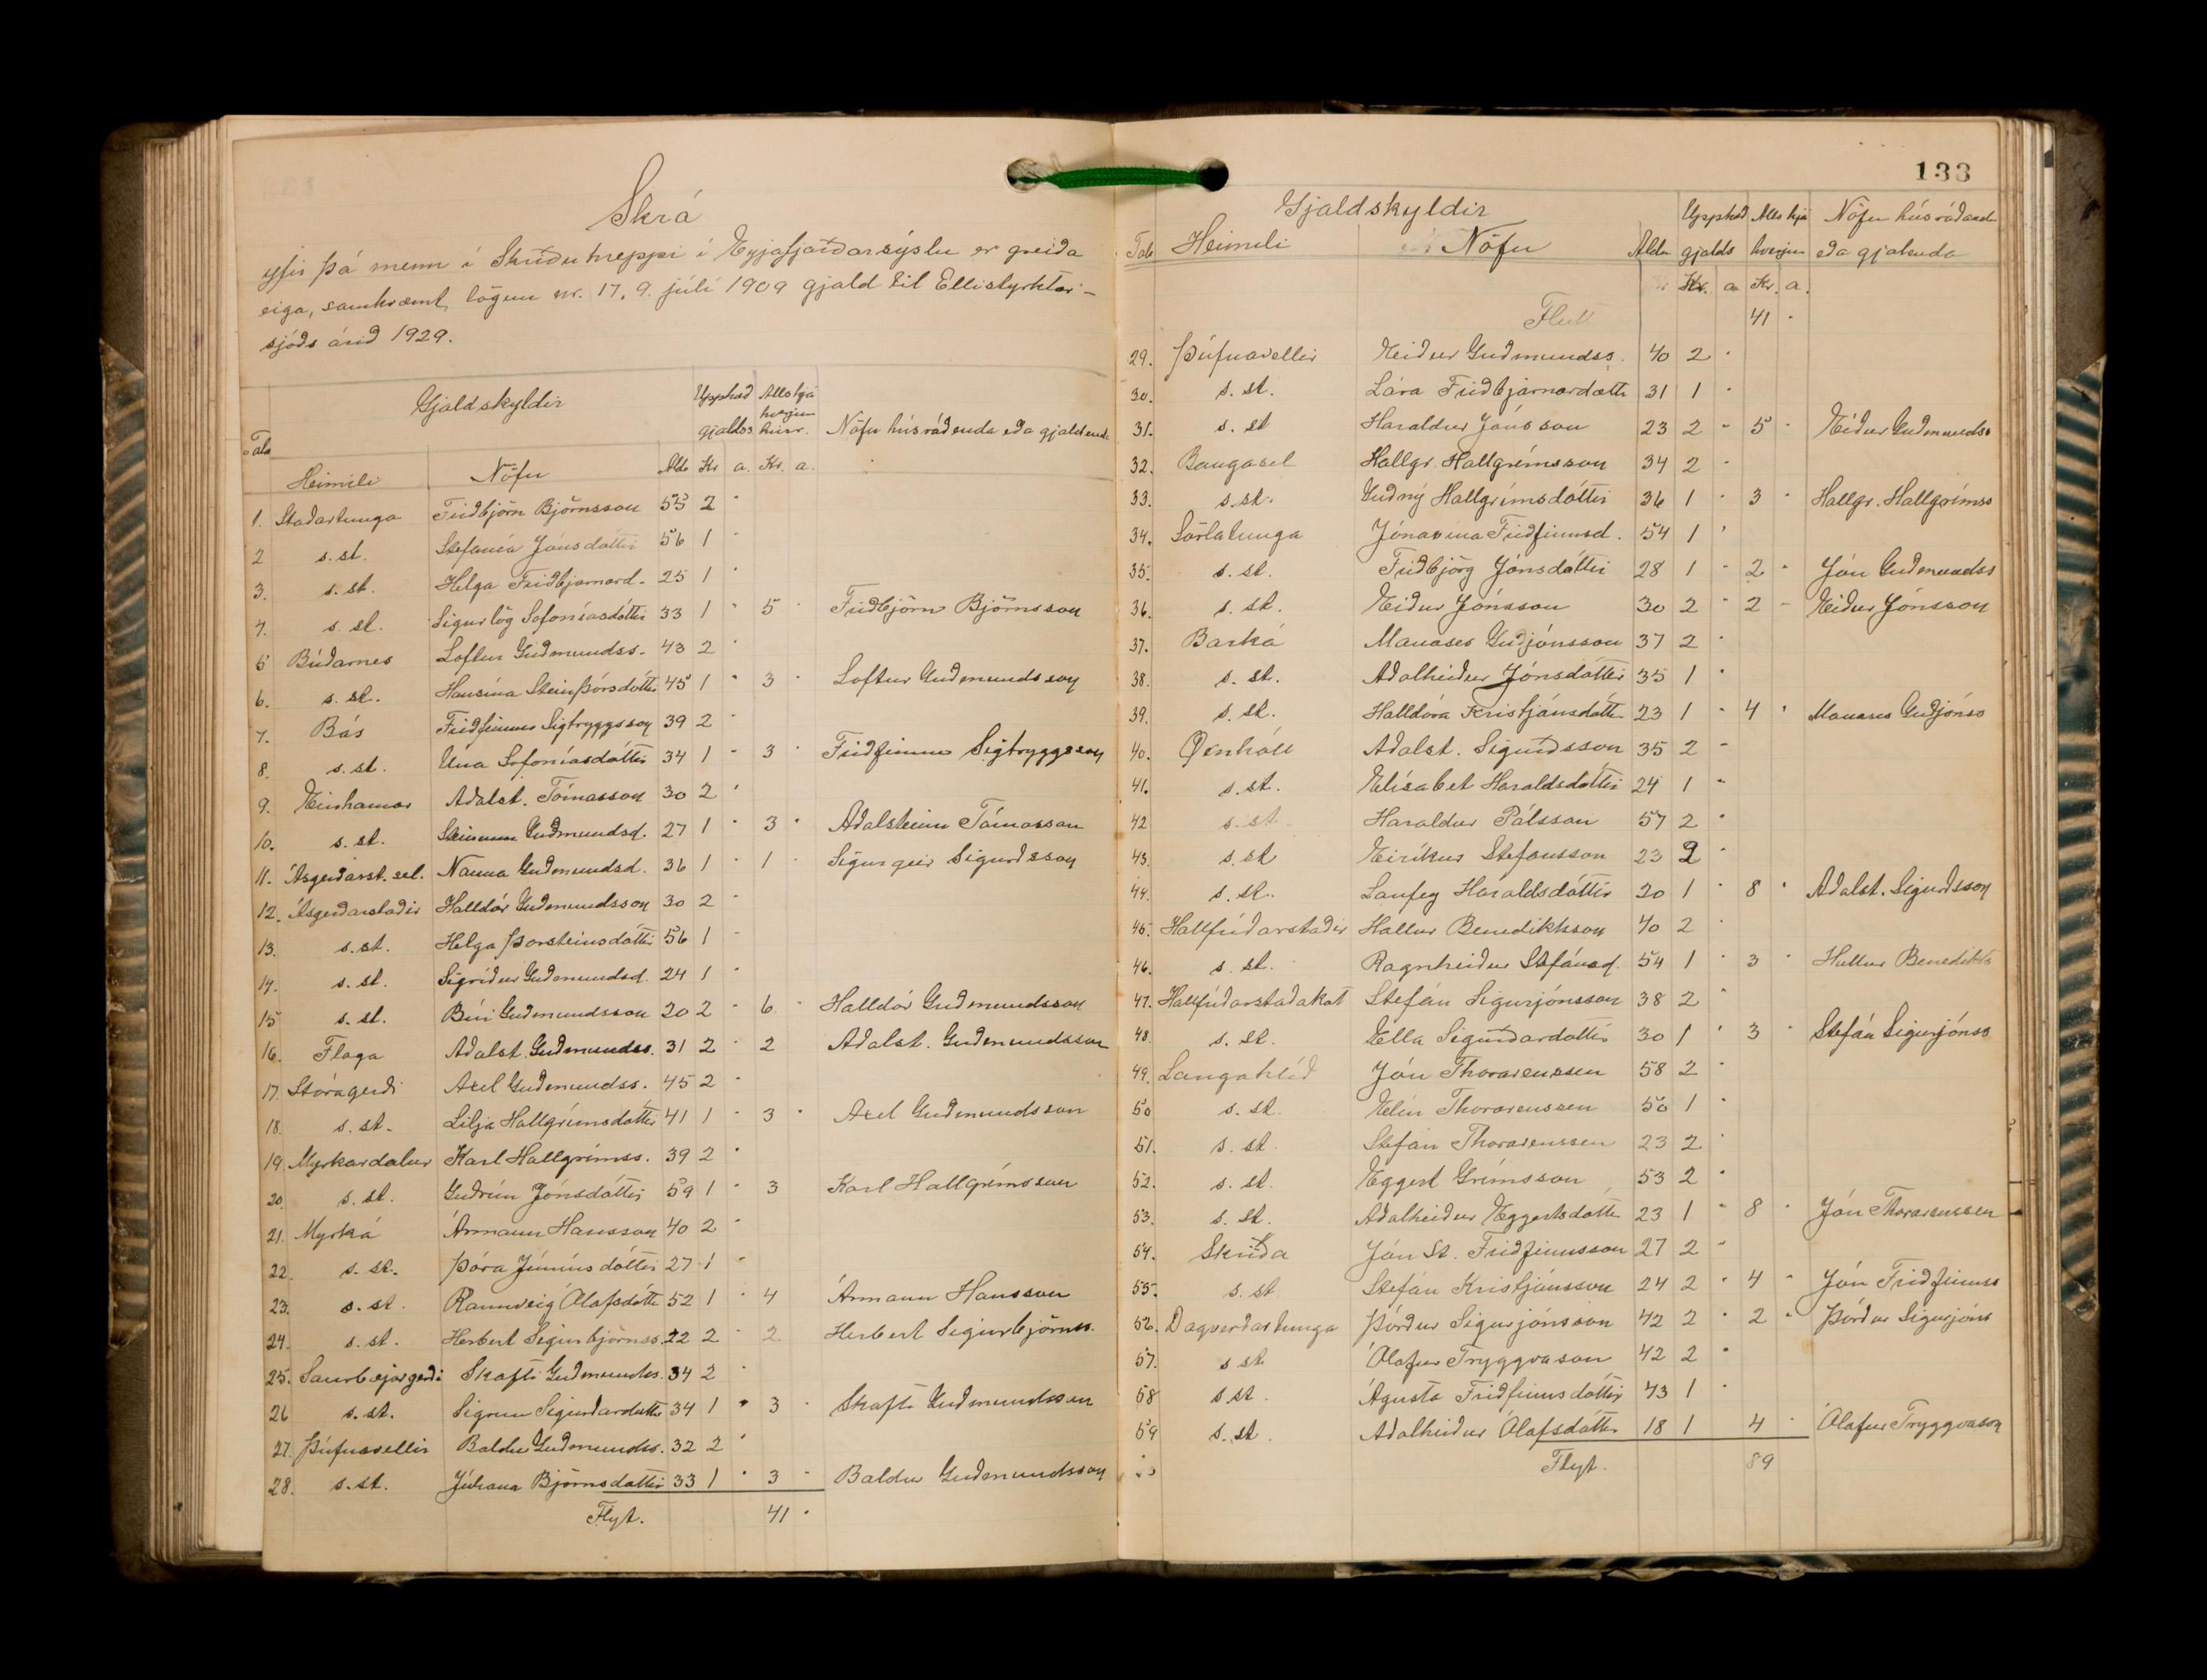 Skrá
yfir þá menn í Skriðuhreppi í Eyjafjarðarsýslu er greiða
eiga, samkvæmt lögum nr. 17, 9. júlí 1909 gjald til Ellistyrktar-
sjóðs árið 1929.
Gjaldskyldir Upphæð Alls hjá
gjalds hverjum húsr. Nöfn húsráðenda eða gjaldenda
Tala
Heimili Nöfn Aldr Kr a. Kr. a.
1. Staðartunga Friðbjörn Björnsson 55 2 "
2 s. st. Stefanía Jónsdóttir 56 1 "
3. s. st. Helga Friðbjarnard. 25 1 "
4. s. st. Sigurlög Sofoníasdóttir 33 1 " 5 " Friðbjörn Björnsson
5 Búðarnes Loftur Guðmundss. 43 2
6. s. st. Hansína Steinþórsdóttir 45 1 " 3 " Loftur Guðmundsson
7. Bás Friðfinnur Sigtryggsson 39 2 "
8. s. st. Una Sofoníasdóttir 34 1 " 3 " Friðfinnur Sigtryggsson
9. Einhamar Aðalst. Tómasson 30 2 "
10. s. st. Steinunn Guðmundsd. 27 1 " 3 " Aðalsteinn Tómasson
11. Ásgerðarst. sel. Nanna Guðmundsd. 36 1 " 1 " Sigurgeir Sigurðsson
12. Ásgerðarstaðir Halldór Guðmundsson 30 2 "
13. s. st. Helga Þorsteinsdóttir 56 1 "
14. s. st. Sigríður Guðmundsd. 24 1 "
15 s. st. Búi Guðmundsson 20 2 " 6 " Halldór Guðmundsson
16. Flaga Aðalst. Guðmundss. 31 2 " 2 Aðalst. Guðmundsson
17. Stóragerði Axel Guðmundss. 45 2 "
18. s. st. Lilja Hallgrímsdóttir 41 1 " 3 " Axel Guðmundsson
19. Myrkardalur Karl Hallgrímss. 39 2 "
20. s. st. Guðrún Jónsdóttir 59 1 " 3 Karl Hallgrímsson
21. Myrká Ármann Hansson 40 2 "
22. s. st. Þóra Júníusdóttir 27 1 "
23. s. st. Rannveig Ólafsdóttir 52 1 " 4 Ármann Hansson
24. s. st. Herbert Sigurbjörnss. 22 2 " 2 Herbert Sigurbjörnss.
25. Saurbæjargerði Skafti Guðmundss. 34 2 "
26 s. st. Sigrun Sigurðardóttir 34 1 " 3 " Skafti Guðmundsson
27. Þúfnavellir Baldur Guðmundss. 32 2 "
28. s. st. Júlíana Björnsdóttir 33 1 " 3 " Baldur Guðmundsson
Flyt. 41 "
133
Gjaldskyldir Upphæð Alls hjá Nöfn húsráðend
Tala Heimili Nöfn Aldur gjalds hverjum eða gjalenda
Kr. a Kr. a.
Flutt 41 "
29. Þúfnavellir Eiður Guðmundss. 40 2 "
30. s. st. Lára Friðbjarnardóttir 31 1 "
31. s. st Haraldur Jónsson 23 2 " 5 " Eiður Guðmundss
32. Baugasel Hallgr. Hallgrímsson 34 2 "
33. s. st. Guðný Hallgrímsdóttir 36 1 " 3 " Hallgr. Hallgrímss
34. Sörlatunga Jónasína Friðfinnsd. 54 1 "
35. s. st. Friðbjörg Jónsdóttir 28 1 " 2 " Jón Guðmundss
36. s. st. Eiður Jónsson 30 2 " 2 " Eiður Jónsson
37. Barká Manases Guðjónsson 37 2 "
38. s. st. Aðalheiður Jónsdóttir 35 1 "
39. s. st. Halldóra Kristjánsdóttir 23 1 " 4 " Manases Guðjónss
40. Öxnhóll Aðalst. Sigurðsson 35 2 "
41. s. st. Elísabet Haraldsdóttir 24 1 "
42 s. st. Haraldur Pálsson 57 2 "
43. s. st Eiríkur Stefansson 23 2 "
44. s. st. Laufey Haraldsdóttir 20 1 " 8 " Aðalst. Sigurðsson
45. Hallfríðarstaðir Hallur Benediktsson 40 2 "
46. s. st. Ragnheiður Stefánsd. 54 1 " 3 " Hallur Benedikts
47. Hallfríðarstaðakot Stefán Sigurjónsson 38 2 "
48. s. st. Ella Sigurðardóttir 30 1 " 3 " Stefán Sigurjónss
49. Langahlíð Jón Thorarensen 58 2 "
50 s. st. Elín Thorarensen 50 1 "
51. s. st. Stefán Thorarenssen 23 2 "
52. s. st. Eggert Grímsson 53 2 "
53. s. st. Aðalheiður Eggertsdóttir 23 1 " 8 " Jón Thorarenssen
54. Skriða Jón St. Friðfinnsson 27 2 "
55. s. st Stefán Kristjánsson 24 2 " 4 " Jón Friðfinnss
56. Dagverðartunga Þórður Sigurjónsson 42 2 " 2 " Þórður Sigurjóns
57. s st. Ólafur Tryggvason 42 2 "
58 s st. Ágústa Friðfinnsdóttir 43 1 "
59 s. st. Aðalheiður Ólafsdóttir 18 1 4 " Ólafur Tryggvason
Flyt. 89